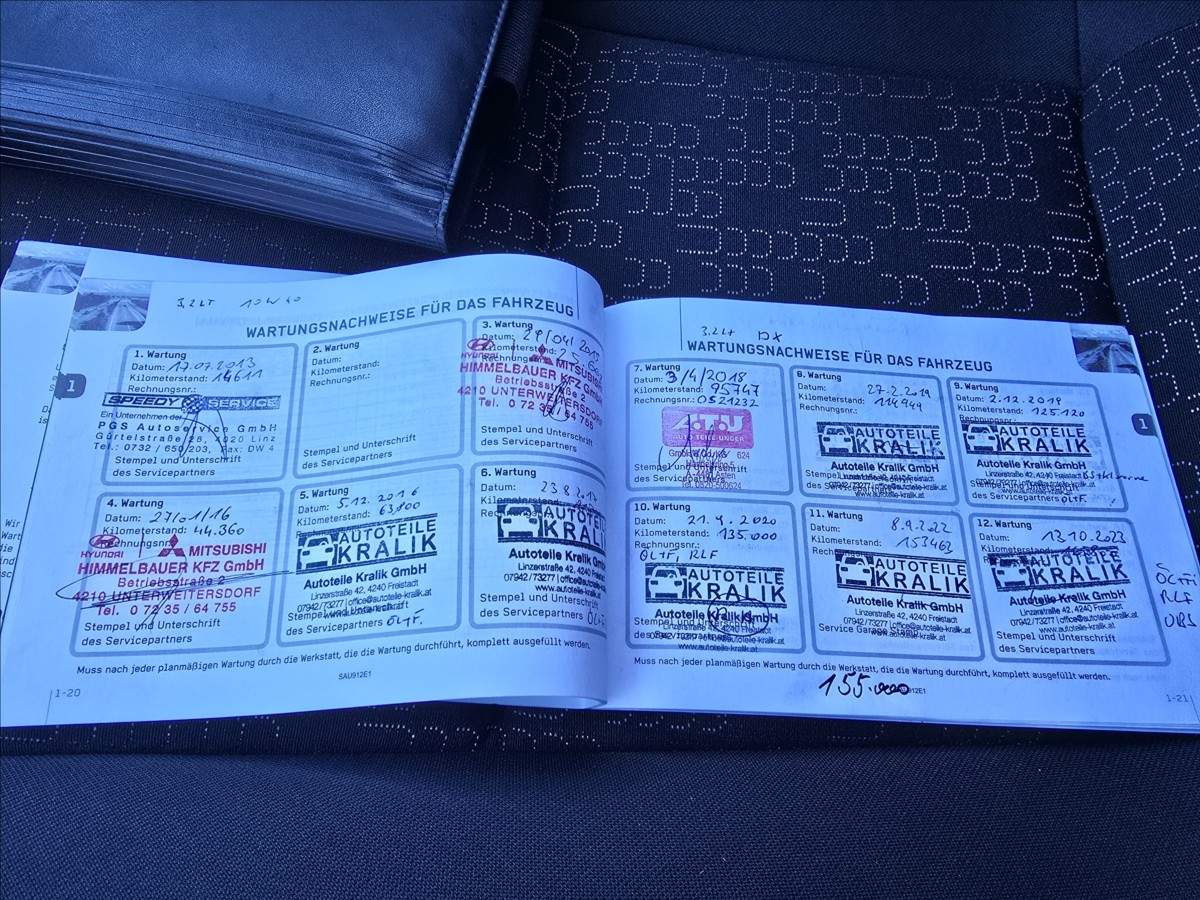 3,2 LT 10W40
WARTUNGSNACHWEISE FÜR DAS FAHRZEUG
1
1. Wartung
Datum: 17.07.2013
Kilometerstand: 14611
Rechnungsnr.:
SPEEDY SERVICE
Ein Unternehmen der
PGS Autoservice GmbH
Gürtelstraße 28, 4020 Linz
Tel.: 0732 / 650/203, Fax: DW 4
Stempel und Unterschrift
des Servicepartners
2. Wartung
Datum:
Kilometerstand:
Rechnungsnr.:
Stempel und Unterschrift
des Servicepartners
3. Wartung
Datum: 29/04/
Kilometerstand:
Rechnungsnr.
HYUNDAI MITSUBISHI
HIMMELBAUER KFZ GmbH
Betriebsstraße 2
4210 UNTERWEITERSDORF
Tel. 0 72 35 / 64 755
Stempel und Unterschrift
des Servicepartners
4. Wartung
Datum: 27/01/16
Kilometerstand: 44.360
Rechnungsnr.:
HYUNDAI MITSUBISHI
HIMMELBAUER KFZ GmbH
Betriebsstraße 2
4210 UNTERWEITERSDORF
Tel. 0 72 35 / 64 755
Stempel und Unterschrift
des Servicepartners
5. Wartung
Datum: 5.12.2016
Kilometerstand: 63800
AUTOTEILE
KRALIK
Autoteile Kralik GmbH
Linzerstraße 42, 4240 Freistadt
07942/73277 | office@autoteile-kralik.at
www.autoteile-kralik.at
Stempel und Unterschrift
des Servicepartners ÖLTF.
6. Wartung
Datum: 23.8.
Kilometerstand:
AUTOTEILE
KRALIK
Autoteile Kralik GmbH
Linzerstraße 42, 4240 Freistadt
07942/73277 | office@autoteile-kralik.at
www.autoteile-kralik.at
Stempel und Unterschrift
des Servicepartners
Muss nach jeder planmäßigen Wartung durch die Werkstatt, die die Wartung durchführt, komplett ausgefüllt werden.
SAU912E1
1-20
3.2Lt DX
WARTUNGSNACHWEISE FÜR DAS FAHRZEUG
1
7. Wartung
Datum: 3/4/2018
Kilometerstand: 95747
Rechnungsnr.: 0521232
A.T.U
AUTO-TEILE-UNGER
GmbH & Co KG 624
4481 Asten
Stempel und Unterschrift
des Servicepartners
8. Wartung
Datum: 27.2.2019
Kilometerstand: 114949
AUTOTEILE
KRALIK
Autoteile Kralik GmbH
Linzerstraße 42, 4240 Freistadt
07942/73277 | office@autoteile-kralik.at
www.autoteile-kralik.at
9. Wartung
Datum: 2.12.2019
Kilometerstand: 125.120
AUTOTEILE
KRALIK
Autoteile Kralik GmbH
Linzerstraße 42, 4240 Freistadt
07942/73277 | office@autoteile-kralik.at
www.autoteile-kralik.at
des Servicepartners ÖLTF.
10. Wartung
Datum: 21.4.2020
Kilometerstand: 135.000
ÖLTF, RLF
AUTOTEILE
KRALIK
Autoteile Kralik GmbH
Linzerstraße 42, 4240 Freistadt
07942/73277 | office@autoteile-kralik.at
www.autoteile-kralik.at
11. Wartung
Datum: 8.9.22
Kilometerstand: 153463
AUTOTEILE
KRALIK
Autoteile Kralik GmbH
Linzerstraße 42, 4240 Freistadt
07942/73277 | office@autoteile-kralik.at
www.autoteile-kralik.at
12. Wartung
Datum: 13.10.2023
Kilometerstand:
AUTOTEILE
KRALIK
Autoteile Kralik GmbH
Linzerstraße 42, 4240 Freistadt
07942/73277 | office@autoteile-kralik.at
www.autoteile-kralik.at
Stempel und Unterschrift
des Servicepartners
RLF
Muss nach jeder planmäßigen Wartung durch die Werkstatt, die die Wartung durchführt, komplett ausgefüllt werden.
155.000
1-21